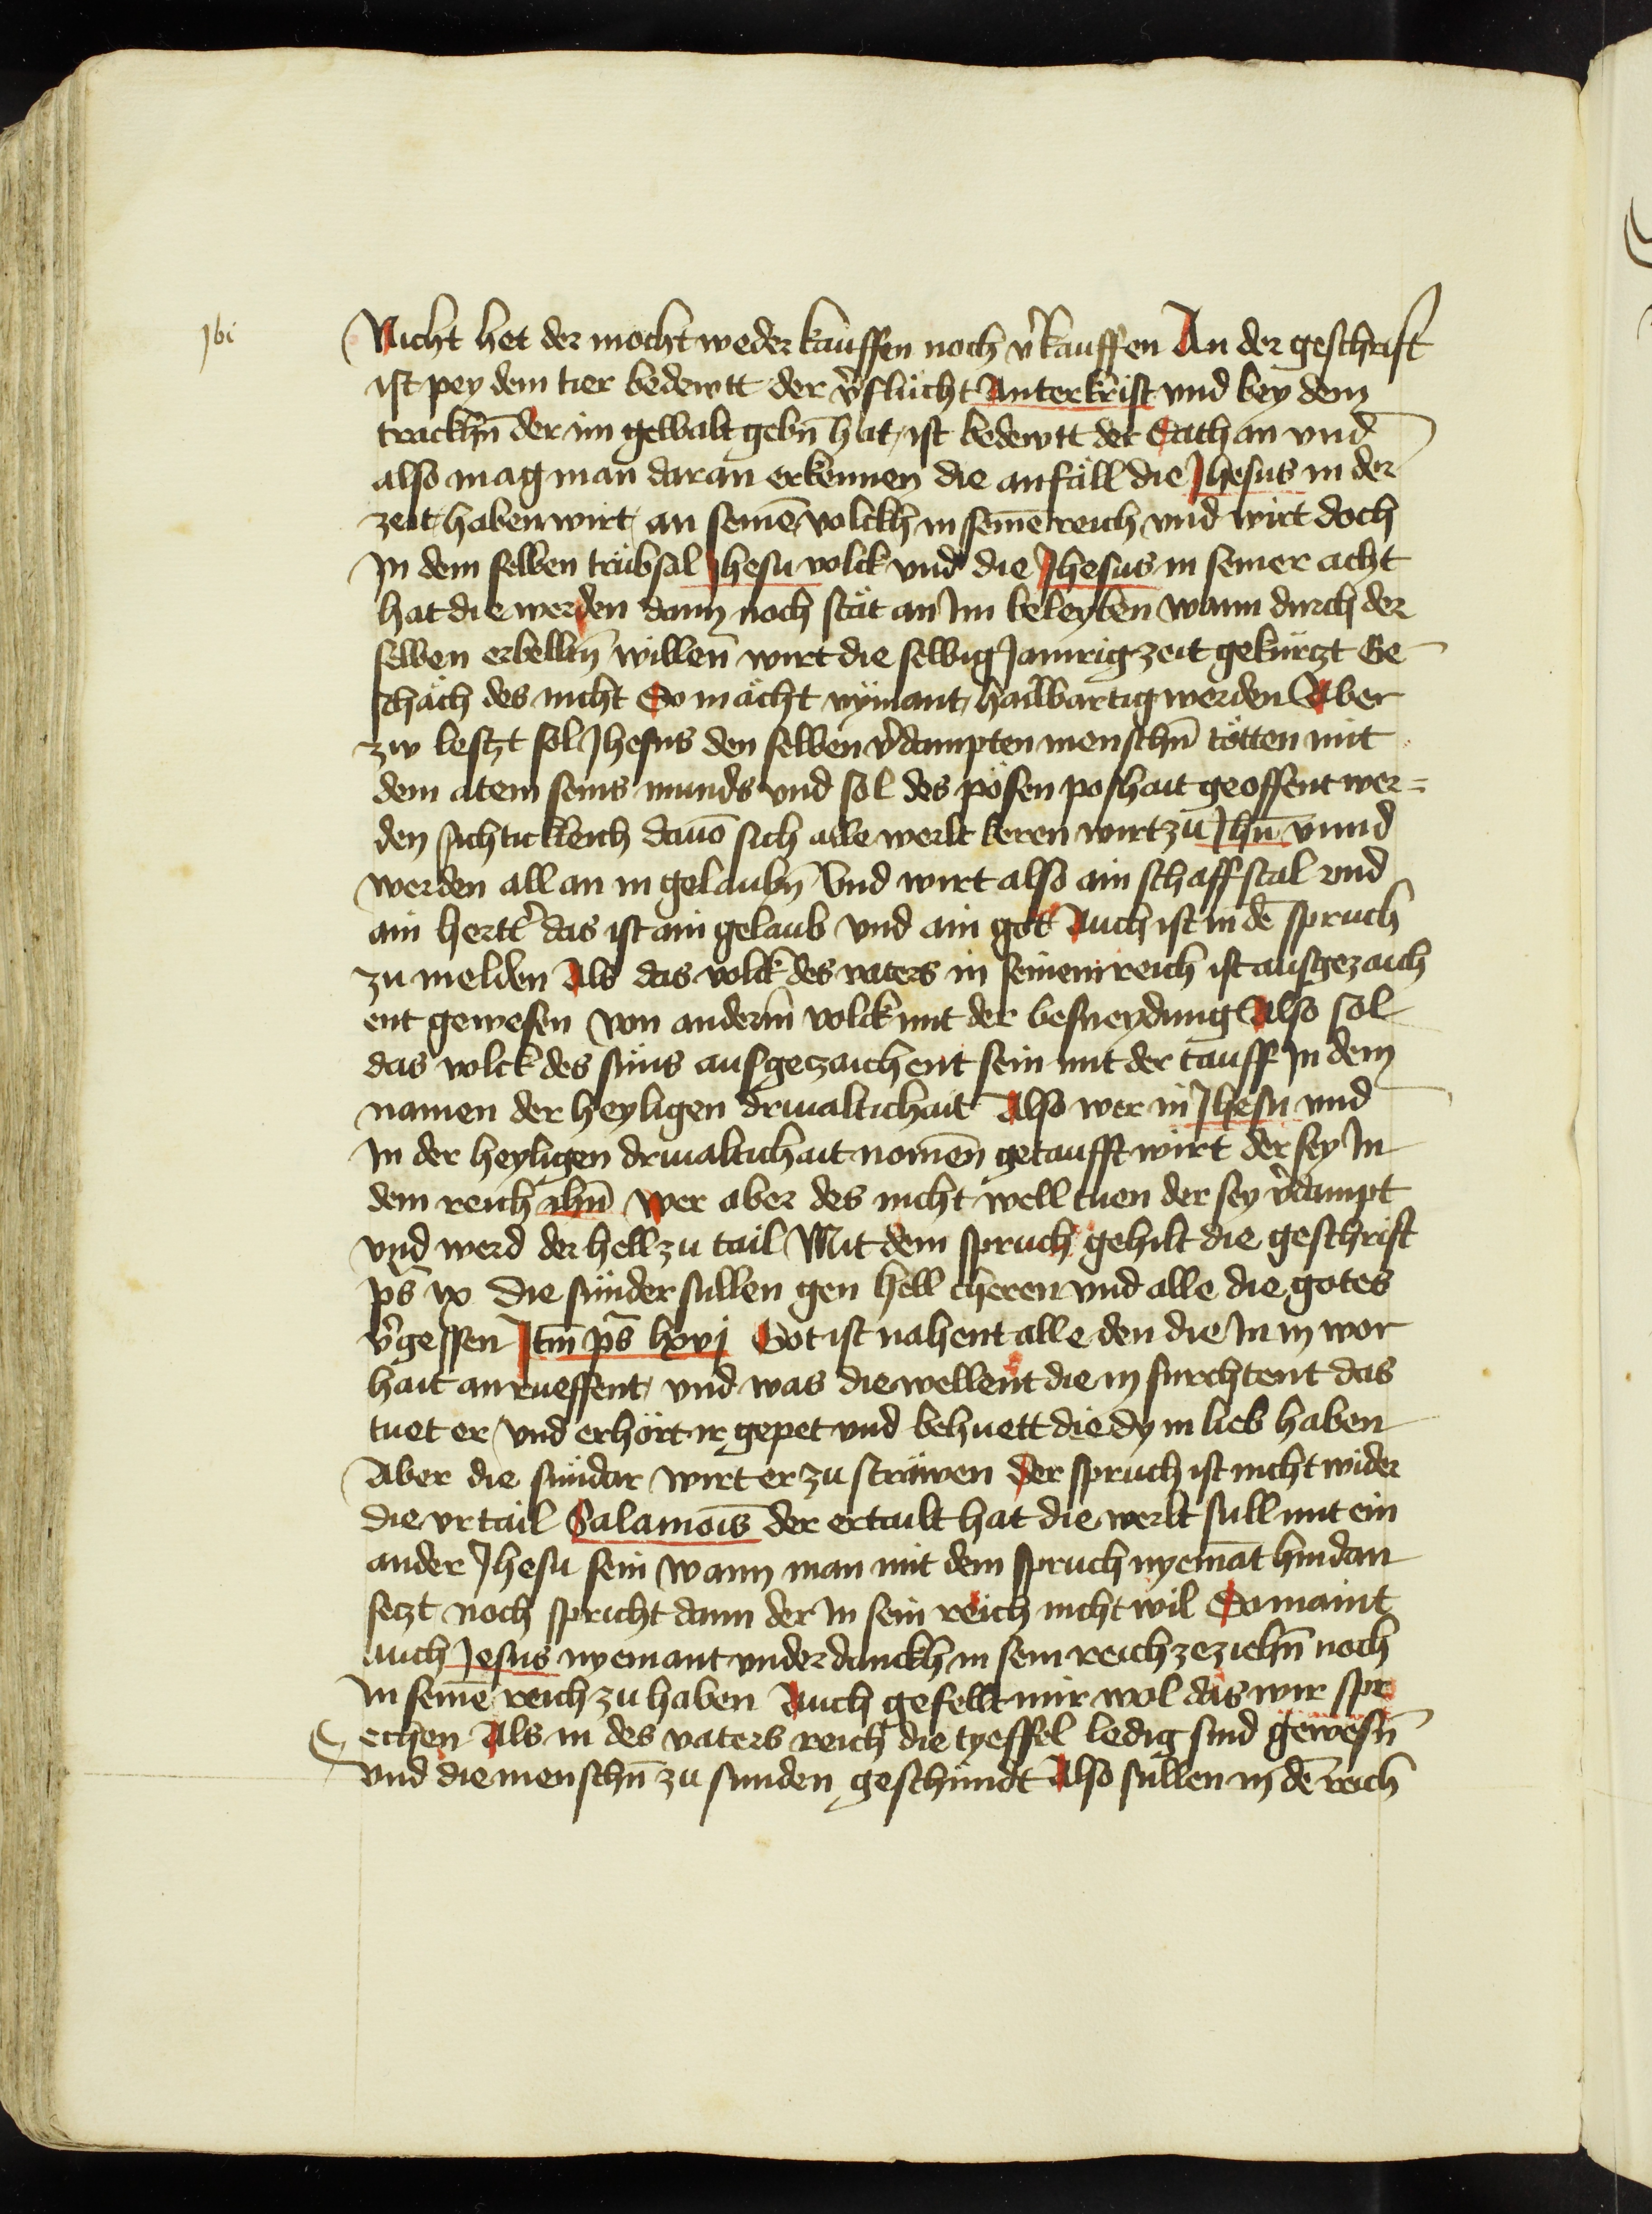 jbi
Nicht het der mocht weder kauffen noch v̾kauffen An der geschrift
ist pey dem tier bedewtt der v̾flücht Anterkrist vnd bey dem
trackhn̄ der im gewalt gebn̄ hat ist bedewtt der Sathan vnd
also mag man daran erkennen die anfäll die Jhesus in der
zeit haben wirt an seinē volckh in seinē reich vnd wirt doch
In dem selben trübsal Jhesu volck vnd die Jhesus in seiner acht
hat die werden dann noch stät an Im beleyben wann durch der
selben erbelltn̄ willen wirt die selbig Jamrig zeit gekürtzt Ge
schäch des nicht So mächt nÿmant hailbartig werden Aber
zw lestzt sol Jhesus den selben v̾dampten menschn̄ tötten mit
dem atem seins munds vnd sol des pösen poshait geoffent wer=
den sichtickleich dauō sich alle werlt keren wirt zu Jhū vnnd
werden all an in gelaubn̄ Vnd wirt also ain schaff stal vnd
ain hertt̾ das ist ain gelaub vnd ain got Auch ist in dē spruch
zu melden Als das volck des vaters in seinem reich ist ausgezaich
ent gewesen von anderm̄ volck mit der besneydung Also sol
das volck des süns ausgeczaichent sein mit der tauff In dem
namen der heyligen driualtichait Also wer in Jhesu vnd
In der heyligen driualtichait nomen̄ getaufft wirt der sey In
dem reich ihū Wer aber des nicht well tuen der sey v̾dampt
vnd werd der hell zu tail Mit dem spruch gehilt die geschrift
ps̄ ix die sünder sullen gen hell cheren vnd alle die gotes
v̾gessen Itm̄ ps̄ lxvj Got ist nahent alle den die In in wor
hait an rueffent vnd was die wellent die in furchtent das
tuet er vnd erhört ir gepet vnd behuett die dy in lieb haben
Aber die sündar wirt er zu sträwen Der spruch ist nicht wider
die vrtail Salamois̄ der ertailt hat die werlt sull mit ein
ander Jhesu sein Wann man mit dem spruch nyemāt hindan
setzt noch spricht dann der In sein reich nicht wil So maint
auch Jesus nyemant vnder danckh in sein reich zeziehn̄ noch
In seinē reich zu haben Auch gefellt mir wol das wir spr
echen Als in des vaters reich die tyeffel ledig sind gewesn̄
vnd die menschn̄ zu sunden geschündt Also sullen in dē reich